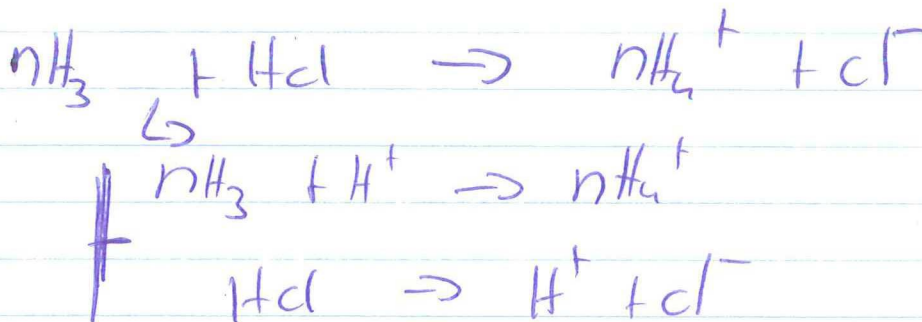 nH₃ + Hcl → nH₄⁺ + cl⁻
↳ nH₃ + H⁺ → nH₄⁺
+ Hcl → H⁺ + cl⁻